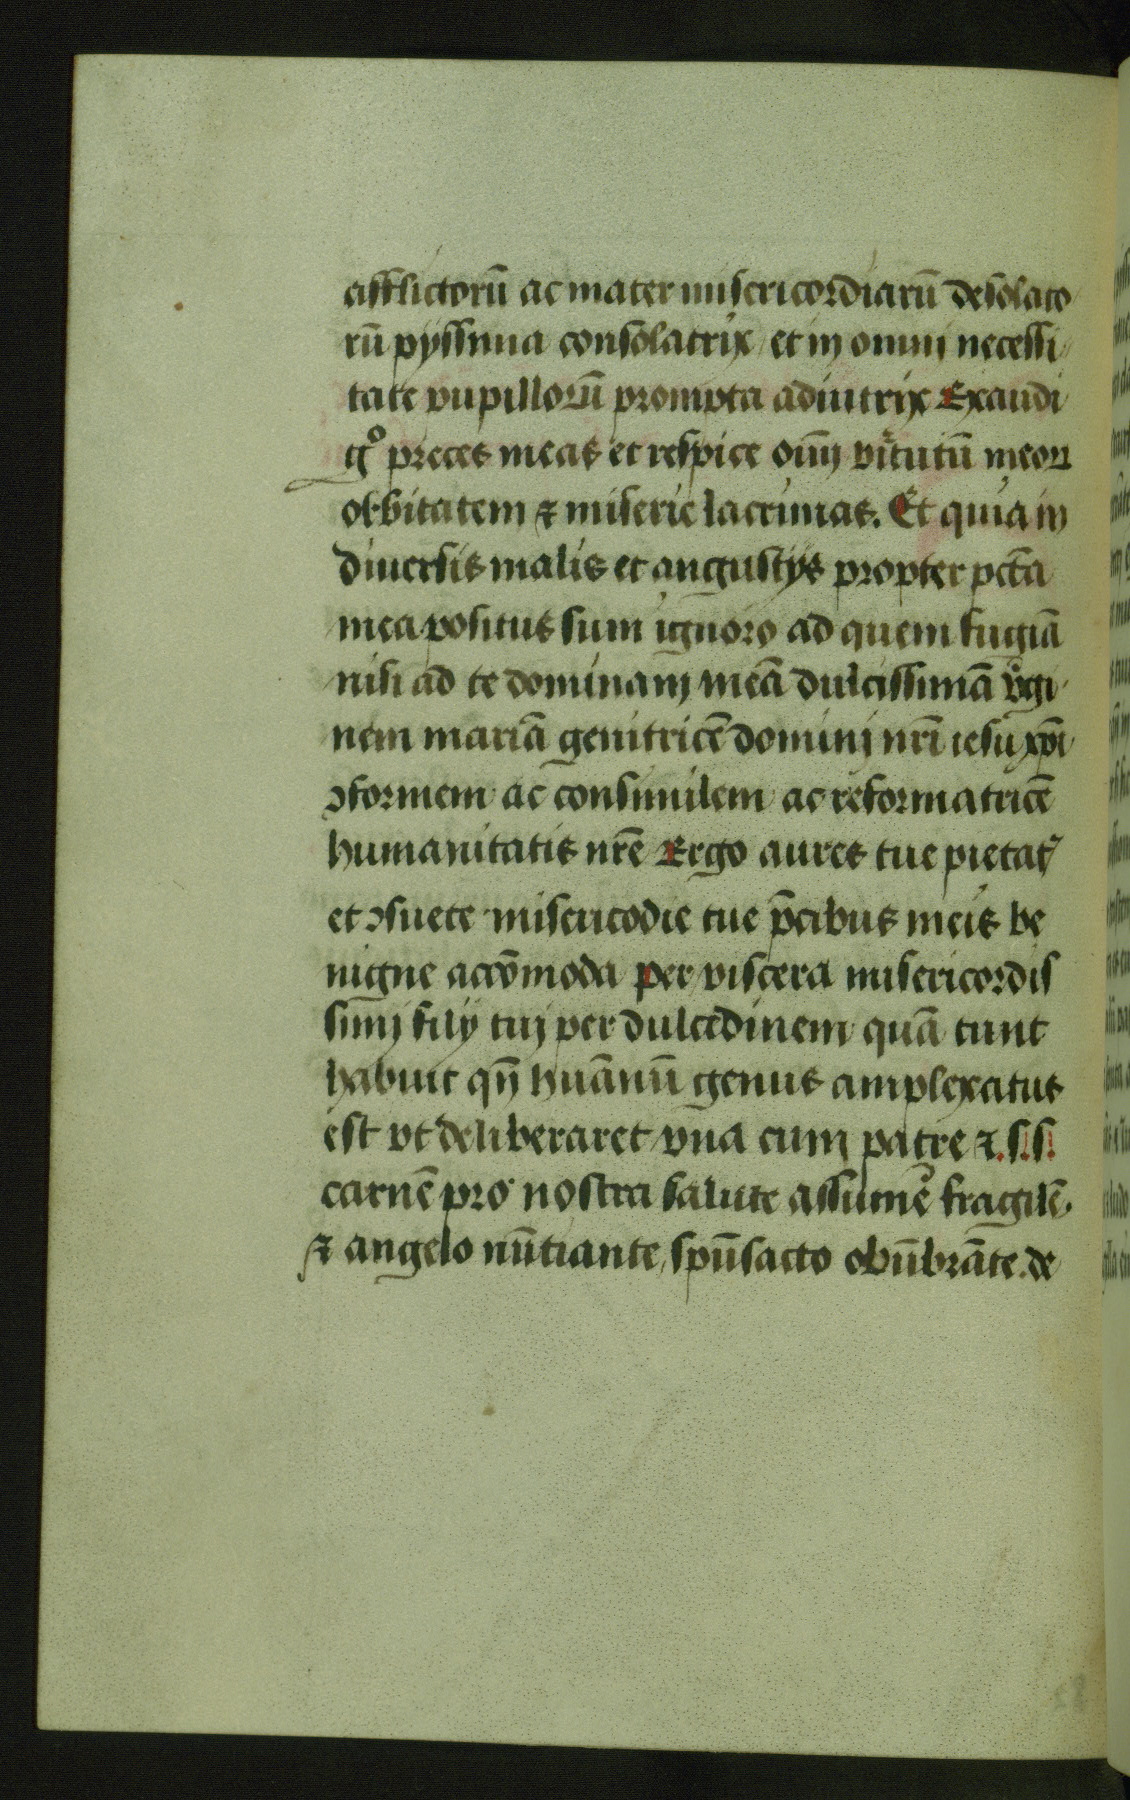 afflictorū ac mater misericordiarū desolato
rū pyssima consolatrix et in omni necessi
tate pupillorū prompta adiutrix Exaudi
gͦ preces meas et respice oīm v̄tutū meoꝝ
orbitatem ⁊ miserie lacrimas. Et quia in
diuersis malis et angustijs propter pctā
mea positus sum ignoro ad quem fugiā
nisi ad te dominam meā dulcissimā v̊gi
nem mariā genitricē domini nr̄i iesu xp̄i
ꝯformem ac consimilem ac reformatricē
humanitatis nr̄e Ergo aures tue pietat᷒
et ꝯsuete misericodie tue p̄cibus meis be
nigne accōmoda per viscera misericordis
simi filij tui per dulcedinem quā tunc
habuit qn̄ huānū genus amplexatus
est vt deliberaret vna cum patre ⁊.s.s.
carnē pro nostra salute assumē fragilē.
⁊ angelo nūtiante spūsācto obūbrāte de